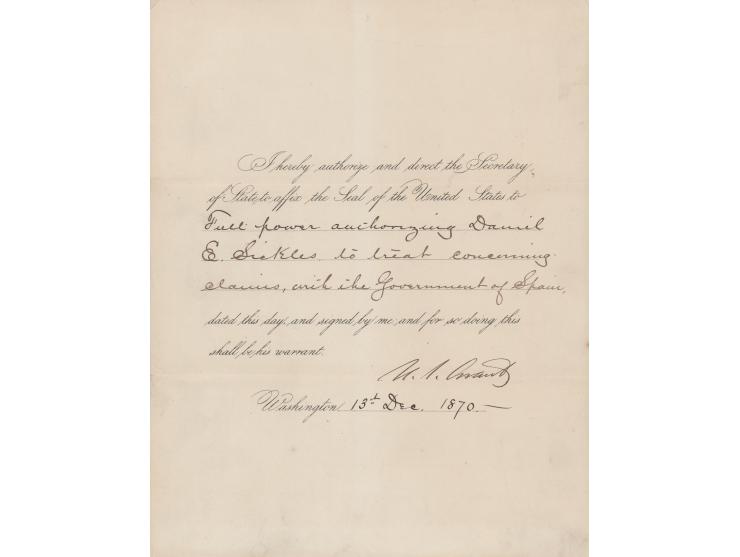 I hereby authorize and direct the Secretary
of State to affix the Seal of the United States to
Full power authorizing Daniel
E. Sickles to treat concerning
claims, with the Government of Spain,
dated this day, and signed by me, and for so doing this
shall be his warrant.
U. S. Grant
Washington, 13th Dec. 1870.—